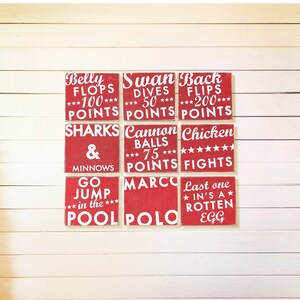 Belly
FLOPS
100
POINTS
Swan
DIVES
50
POINTS
Back
FLIPS
200
POINTS
SHARKS
&
MINNOWS
Cannon
BALLS
75
POINTS
Chicken
FIGHTS
GO
JUMP
in the
POOL
MARCO
POLO
Last one
IN'S A
ROTTEN
EGG